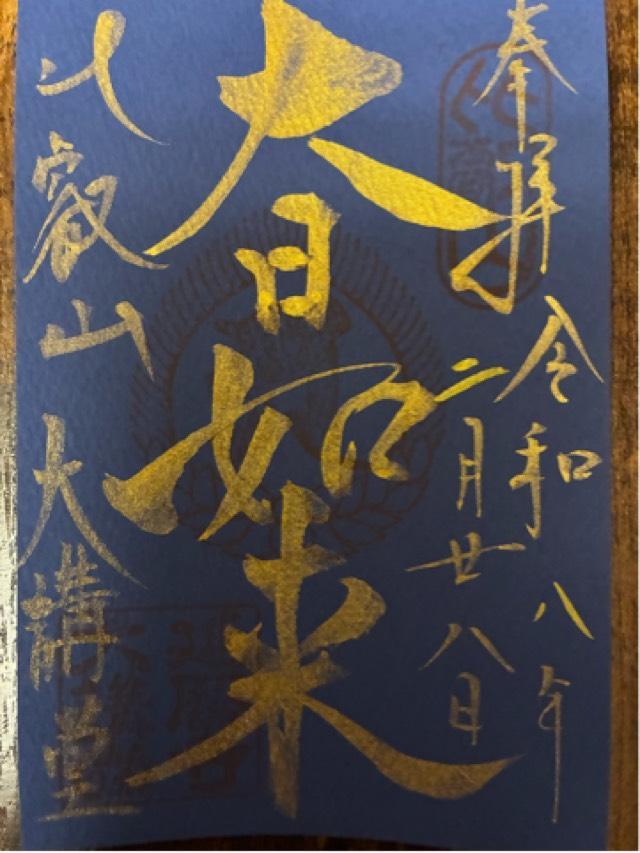 奉拝
令和八年
二月廿八日
大日如来
比叡山
大講堂